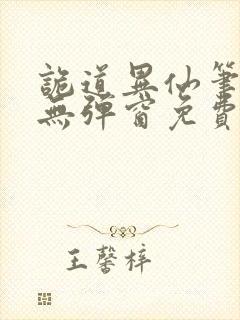 詭道異仙筆
無彈窗免費
王馨梓